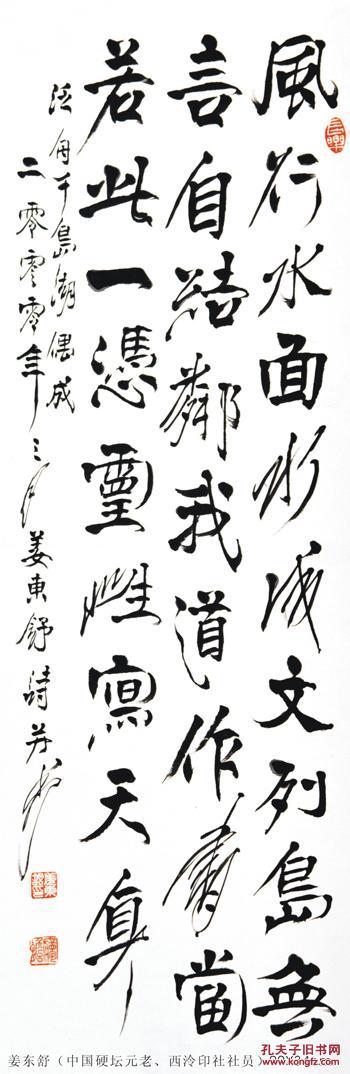 風行水面水成文列島無
言自結鄰我道作書當
若此一憑靈性寫天真
泛舟千島湖偶成
二零零零年三月姜東舒詩并書
姜东舒（中国硬坛元老、西泠印社社员）
孔夫子旧书网